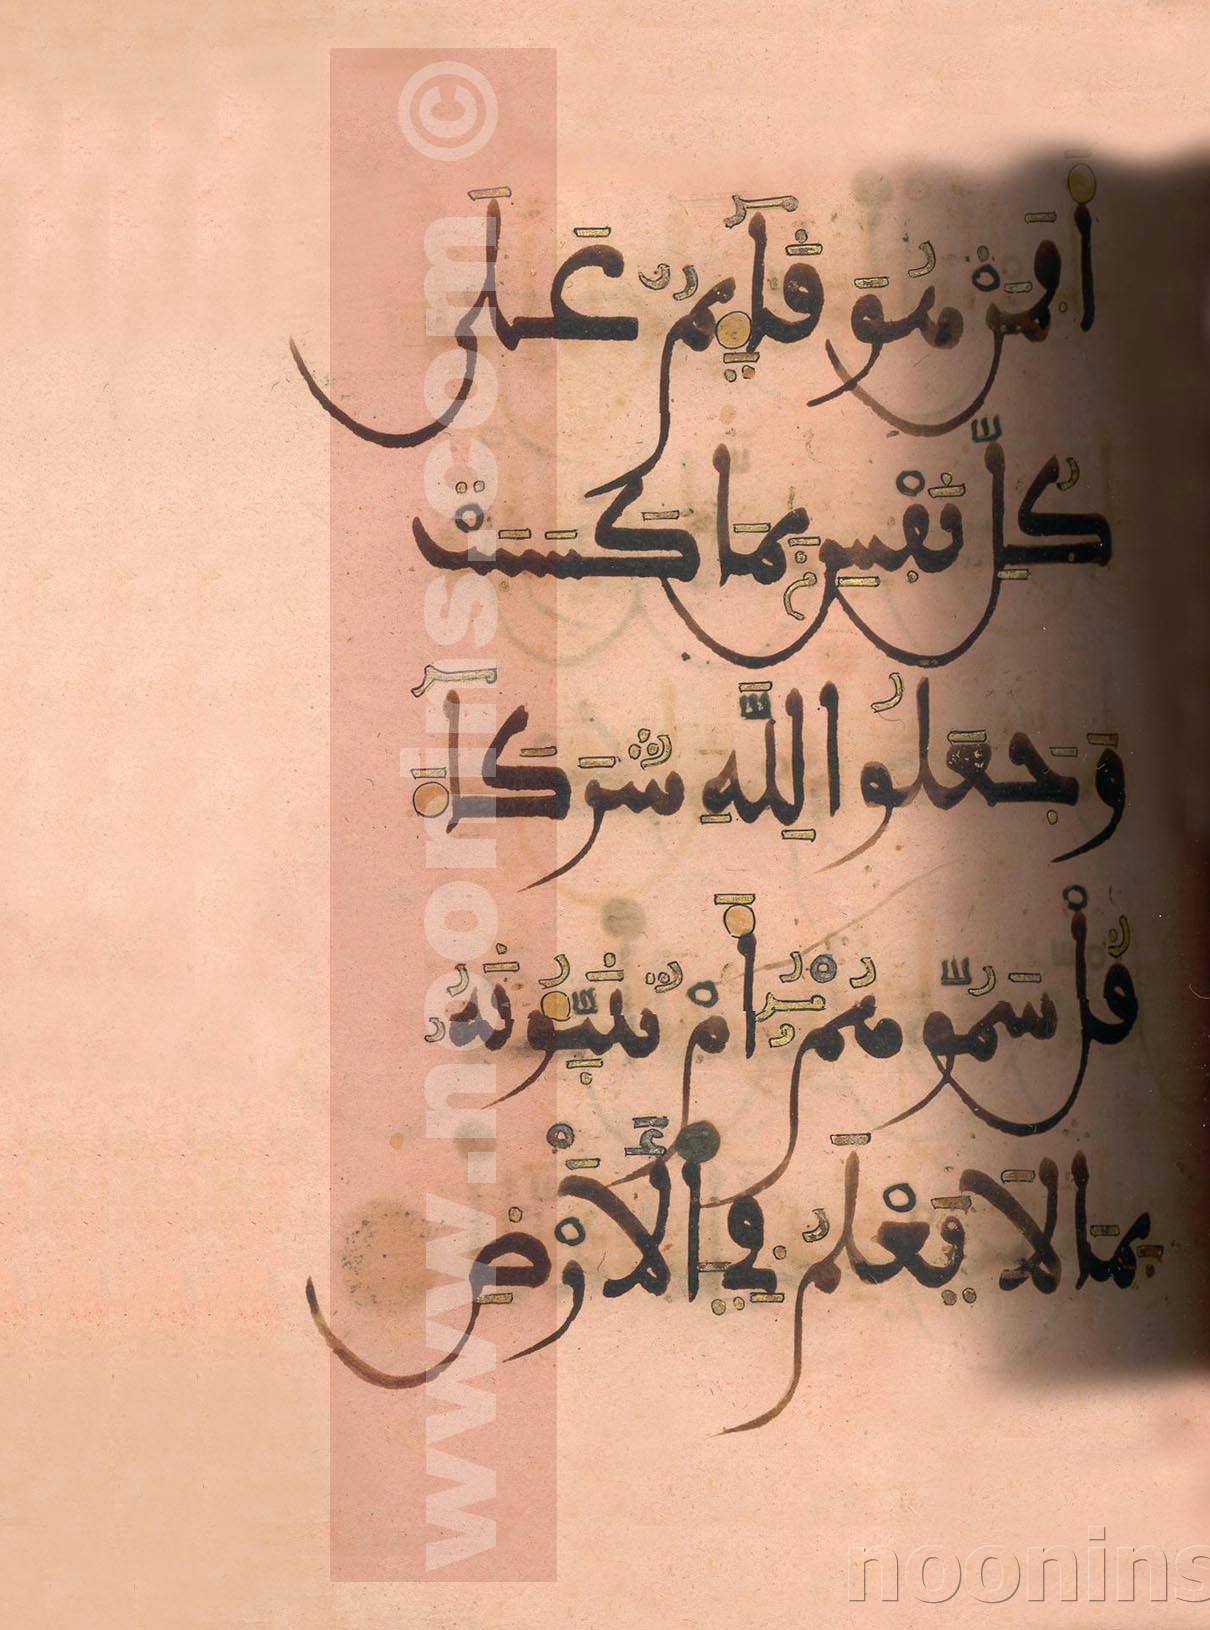 أَفَمَنْ هُوَ قَآئِمٌ عَلَىٰ
كُلِّ نَفْسٍۭ بِمَا كَسَبَتْ
وَجَعَلُوا لِلَّهِ شُرَكَآءَ
قُلْ سَمُّوهُمْ أَمْ تُنَبِّئُونَهُۥ
بِمَا لَا يَعْلَمُ فِي الْأَرْضِ
www.noonins.com ©
noonins